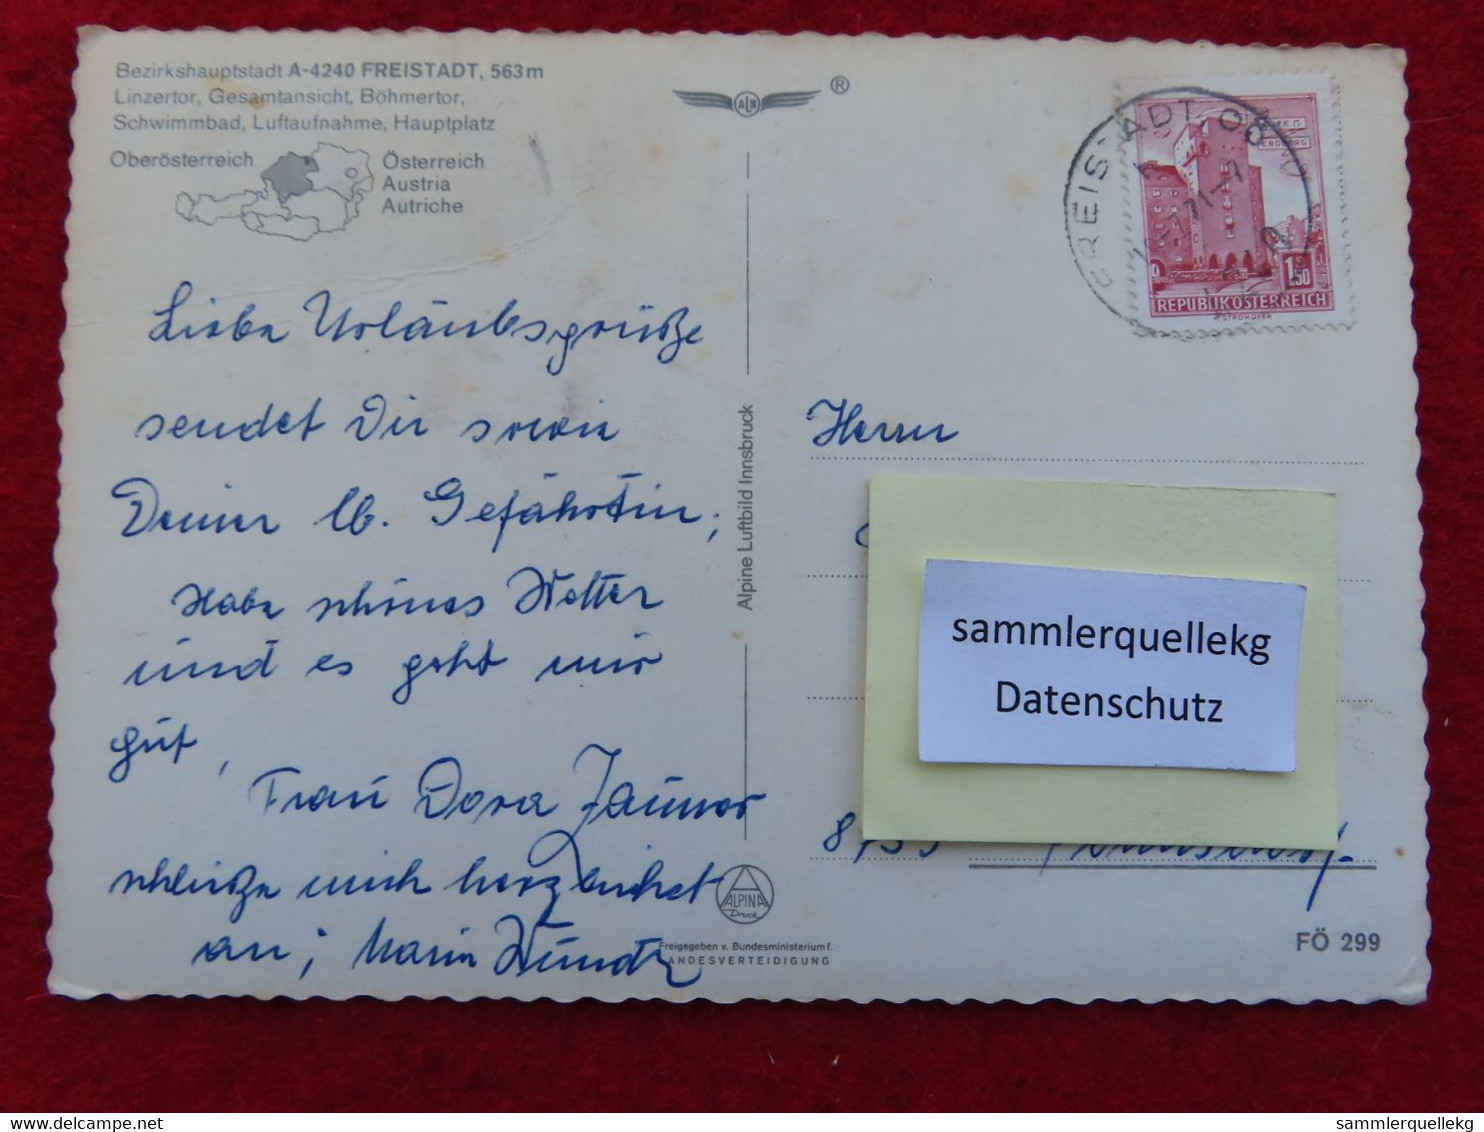 Bezirkshauptstadt A-4240 FREISTADT, 563m
Linzertor, Gesamtansicht, Böhmertor,
Schwimmbad, Luftaufnahme, Hauptplatz
Oberösterreich
Österreich
Austria
Autriche
ALB
®
FREISTADT OÖ
1.50
REPUBLIK ÖSTERREICH
Liebe Urlaubsgrüße
sendet Dir sowie
Deiner lb. Gefährtin,
Habe schönes Wetter
und es geht mir
gut,
Frau Dora
schließe mich herzlichst
an; Maria
Alpine Luftbild Innsbruck
Herrn
sammlerquellekg
Datenschutz
ALPINA
Druck
Freigegeben v. Bundesministerium f.
LANDESVERTEIDIGUNG
FÖ 299
www.delcampe.net
sammlerquellekg